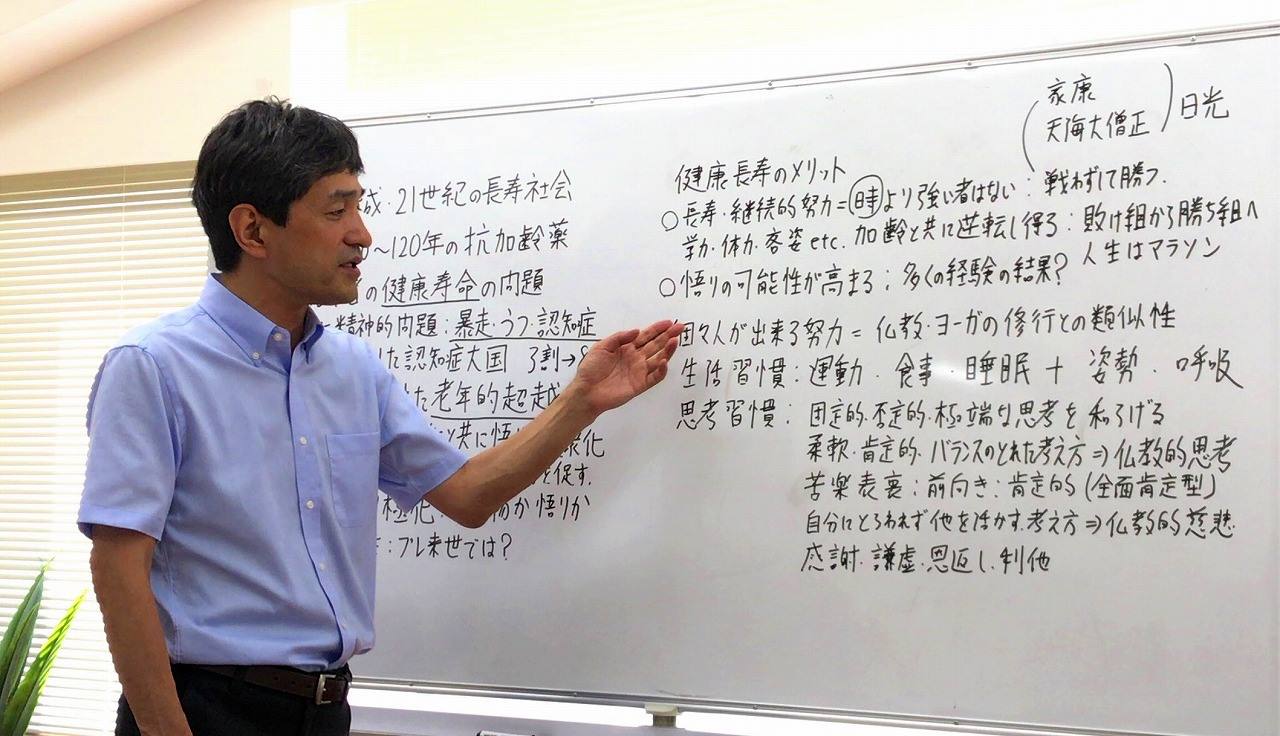 成・21世紀の長寿社会
～120年の抗加齢薬
の健康寿命の問題
精神的問題：暴走・うつ・認知症
した認知症大国 3割→
た老年的超越
と共に悟り 療化
を促す.
極化： か悟りか
：プレ来世では？
家康
天海大僧正
日光
健康長寿のメリット
○長寿・継続的努力=時より強い者はない：戦わずして勝つ.
学力・体力・容姿etc.加齢と共に逆転し得る：敗け組から勝ち組へ
人生はマラソン
○悟りの可能性が高まる；多くの経験の結果？
個々人が出来る努力=仏教・ヨーガの修行との類似性
生活習慣：運動・食事・睡眠+姿勢・呼吸
思考習慣：固定的・否定的・極端な思考を和らげる
柔軟・肯定的・バランスのとれた考え方⇒仏教的思考
苦楽表裏：前向き：肯定的(全面肯定型)
自分にとらわれず他を活かす考え方⇒仏教的慈悲
感謝・謙虚・恩返し・利他